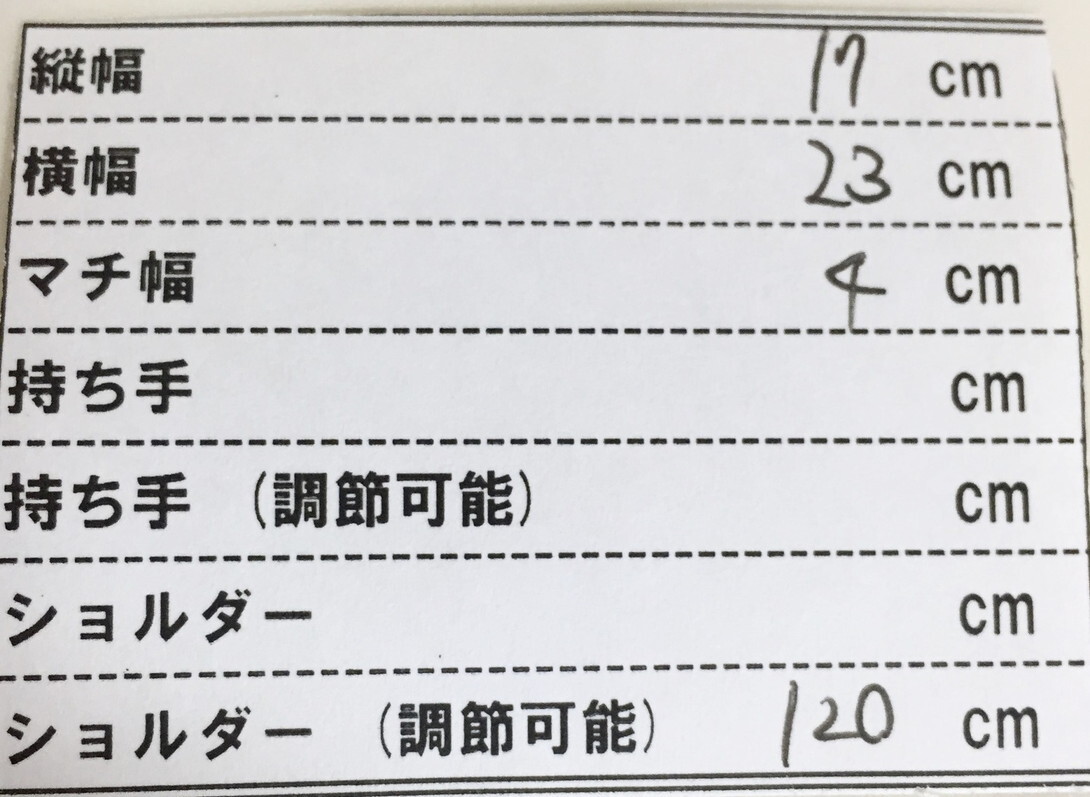 縦幅 17 cm
横幅 23 cm
マチ幅 4 cm
持ち手 cm
持ち手 (調節可能) cm
ショルダー cm
ショルダー (調節可能) 120 cm